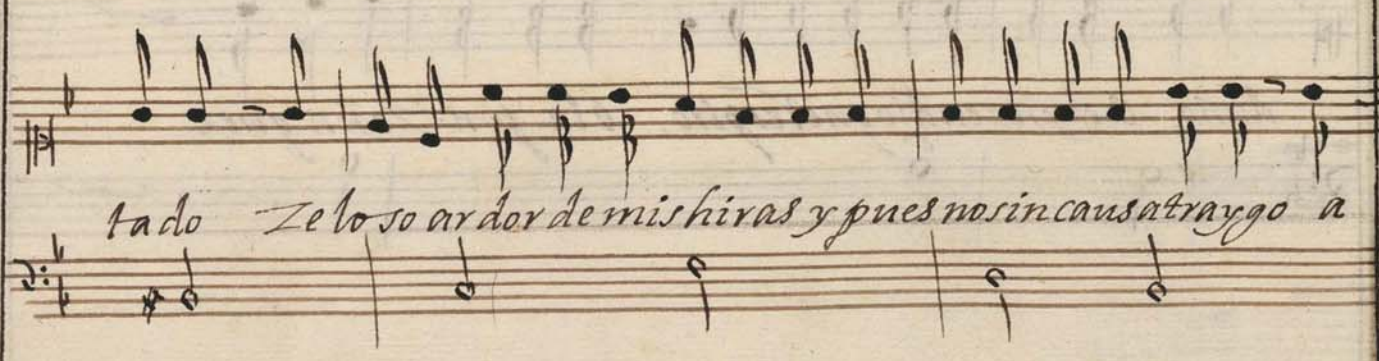 tado Zeloso ardor de mis hiras y pues no sin causa traygo a